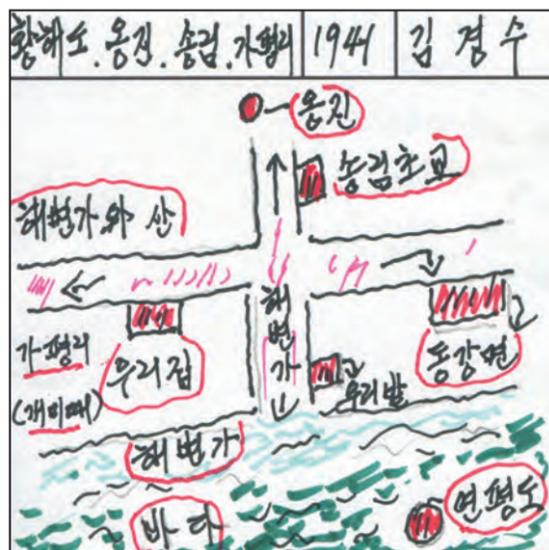 황해도.옹진.송림.가평리 1941 김경수
옹진
송림초교
해변가와 산
해변가
가평리
우리집
(개미떼)
우리밭
동강면
해변가
바다
연평도